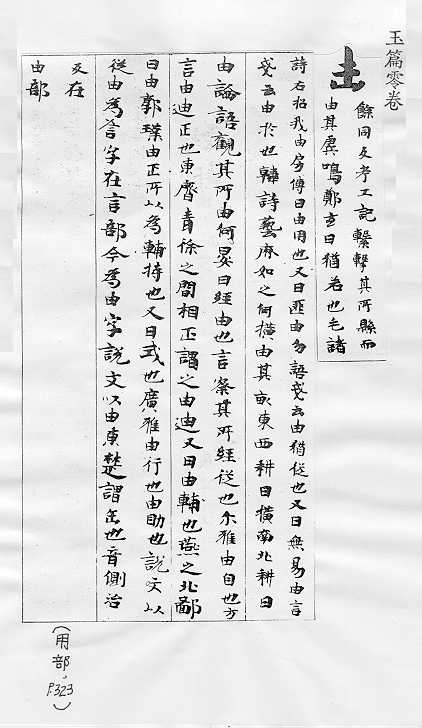 玉篇零卷
由
餘同反考工記繫擊其所縣而
由其虡鳴鄭玄曰猶若也毛詩
詩右招我由房傳曰由用也又曰匪由勿語戔云由猶從也又曰無易由言
戔云由於也韓詩藝麻如之何橫由其畝東西耕曰橫南北耕曰
由論語觀其所由何晏曰經由也言察其所經從也尒雅由自也方
言由迪正也東齊青徐之間相正謂之由迪又曰由輔也燕之北鄙
曰由郭璞由正所以為輔持也又曰式也廣雅由行也由助也說文以
從由為䚻字在言部今為由字說文以由東楚謂缶也音側治
反在
由部
(用部，P.323)